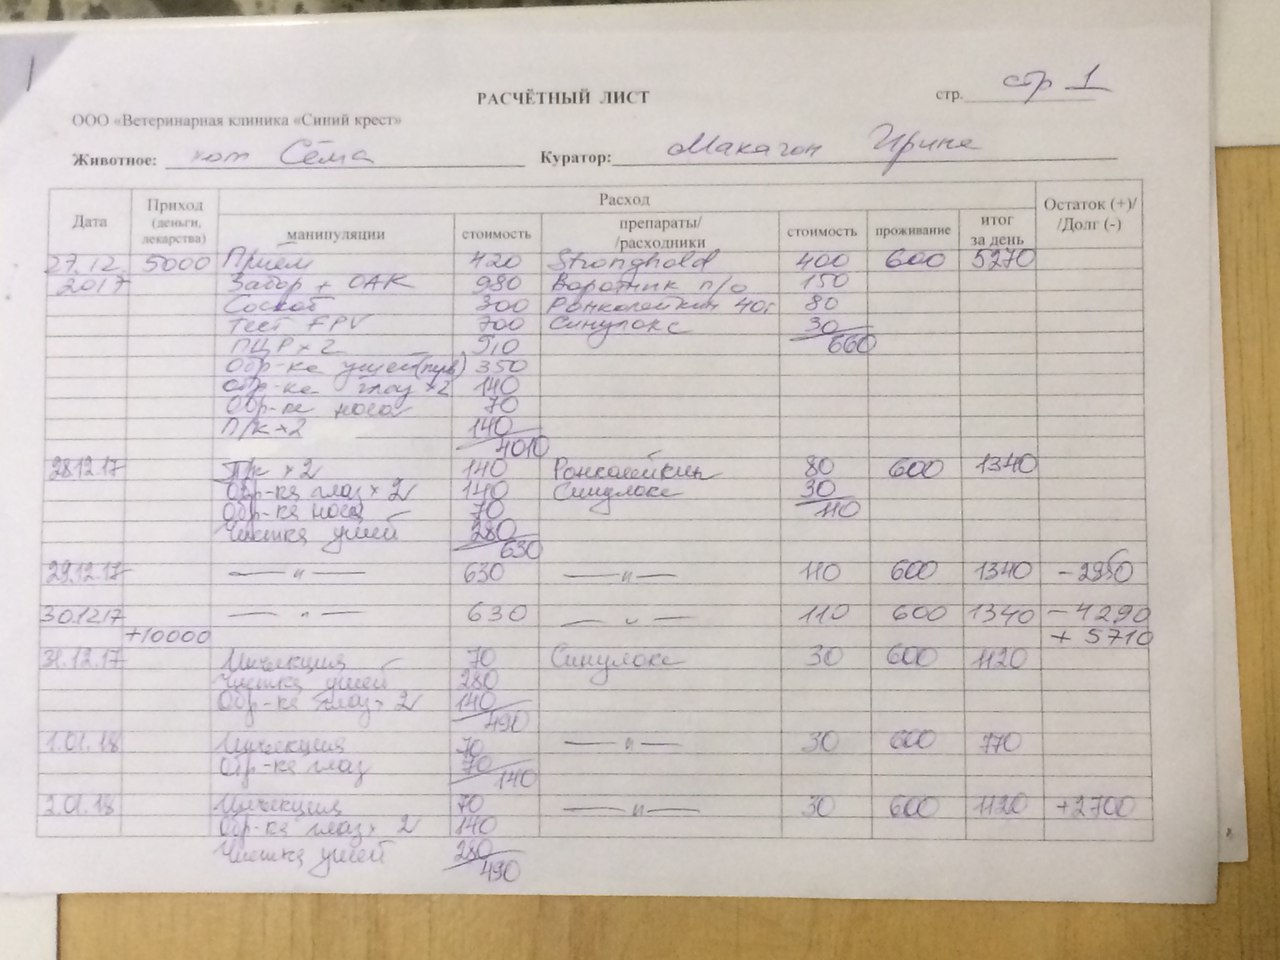 стр 1
РАСЧЁТНЫЙ ЛИСТ стр.
ООО «Ветеринарная клиника «Синий крест»
Животное: кот Сёма Куратор: Макагон Ирина
Дата Приход (деньги, лекарства) Расход Остаток (+)/ /Долг (-)
манипуляции стоимость препараты/ /расходники стоимость проживание итог за день
27.12. 5000 Приём 420 Stronghold 400 600 5270
2017 Забор + ОАК 980 Воротник п/о 150
Соскоб 300 Ронколейкин 40т 80
Тест FPV 700 Синулокс 30
ПЦР × 2 910 660
Обр-ка ушей (перв) 350
Обр-ка глаз × 2 140
Обр-ка носа 70
П/к × 2 140
4010
28.12.17 П/к × 2 140 Ронколейкин 80 600 1340
Обр-ка глаз × 2 140 Синулокс 30
Обр-ка носа 70 110
Чистка ушей 280
630
29.12.17 — и — 630 — и — 110 600 1340 - 2950
30.12.17 — и — 630 — и — 110 600 1340 - 4290
+10000 + 5710
31.12.17 Инъекция 70 Синулокс 30 600 1120
Чистка ушей 280
Обр-ка глаз × 2 140
490
1.01.18 Инъекция 70 — и — 30 600 770
Обр-ка глаз 70
140
2.01.18 Инъекция 70 — и — 30 600 1120 +2700
Обр-ка глаз × 2 140
Чистка ушей 280
490